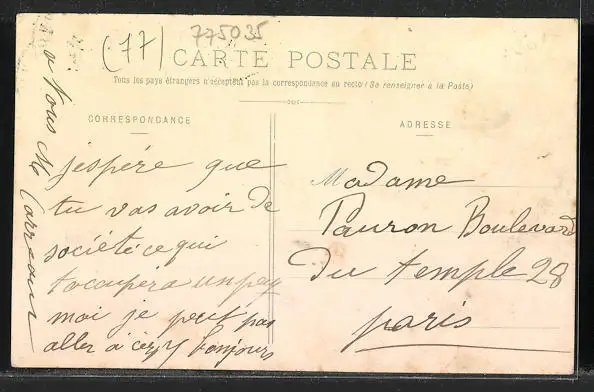 (77)
775035
CARTE POSTALE
Tous les pays étrangers n'acceptent pas la correspondance au recto (Se renseigner à la Poste)
CORRESPONDANCE
j'espère que
tu vas avoir de
société ce qui
t'ocupéra un peu
moi je peut pas
aller à bonjours
a tous
ADRESSE
Madame
Pauron Boulevard
Du temple 28
paris